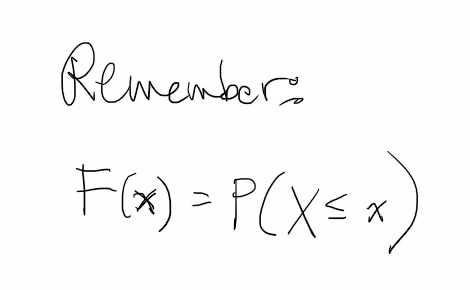 Remember:
F(x) = P(X ≤ x)